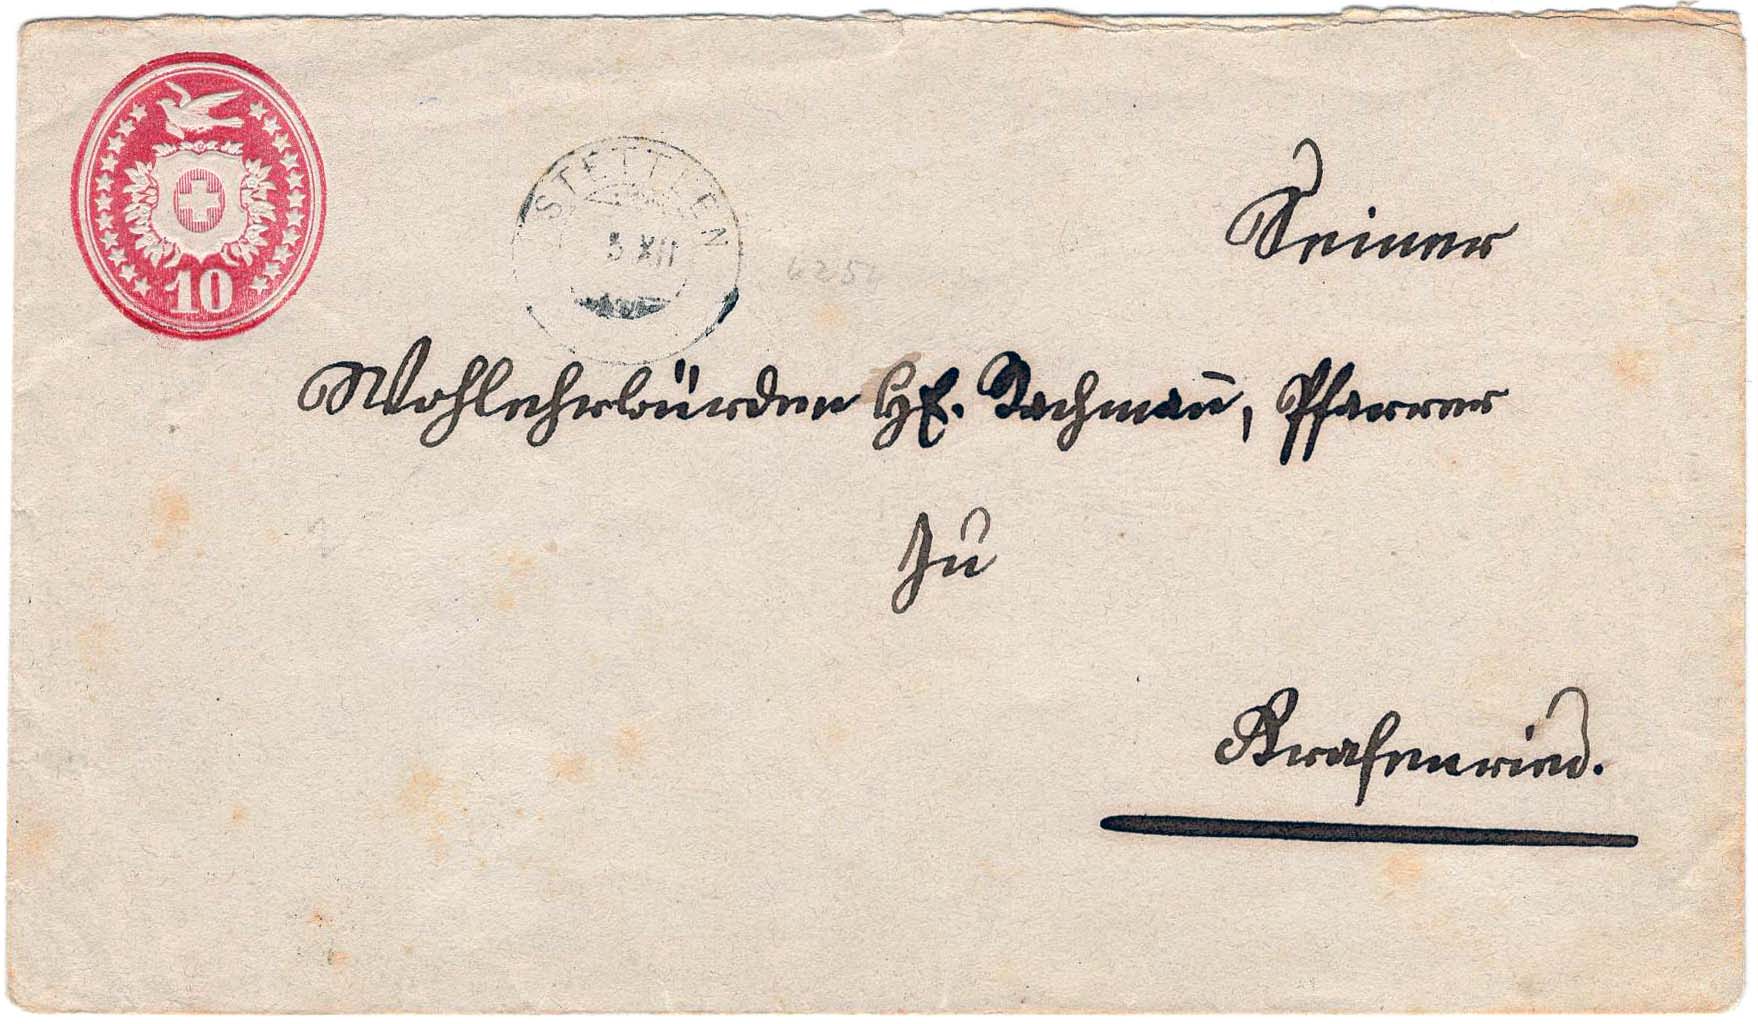 10
STETTLEN
5 XII
Seiner
Wohlehrwürden Hr. Bachman̄, Pfarrer
zu
Krafenried.